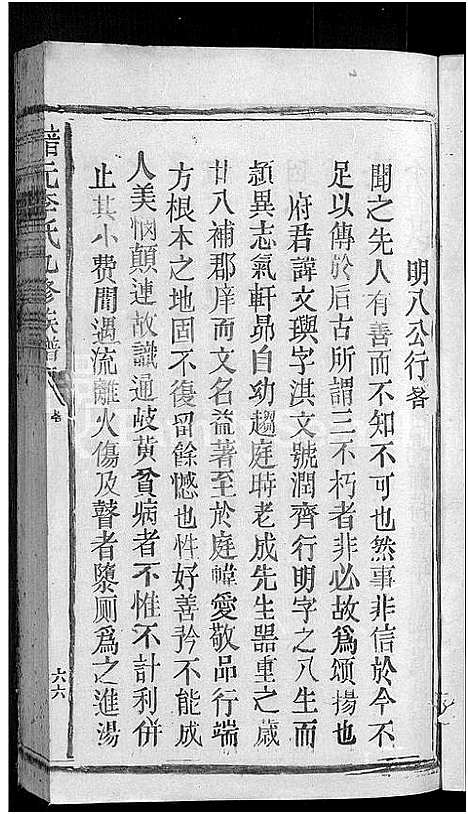 明八公行畧
聞之先人有善而不知不可也然事非信於今不
足以傳於后古所謂三不朽者非必故爲頌揚也
府君諱文璵字淇文號潤齊行明字之八生而
頴異志氣軒昻自幼趨庭時老成先生器重之歲
廿八補郡庠而文名益著至於庭幃愛敬品行端
方根本之地固不復留餘憾也性好善矜不能成
人美憫顛連故識通岐黃貧病者不惟不計利併
止其小費間遇流離火傷及瞽者墜厠爲之進湯
李氏九修族譜
卷
六六